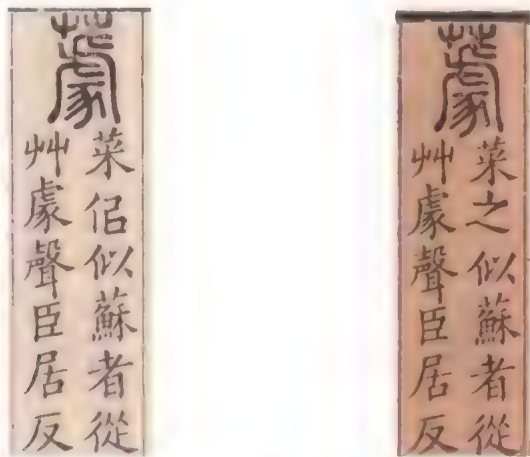 𦼫
菜佀似蘇者從
艸豦聲臣居反
𦼫
菜之似蘇者從
艸豦聲臣居反